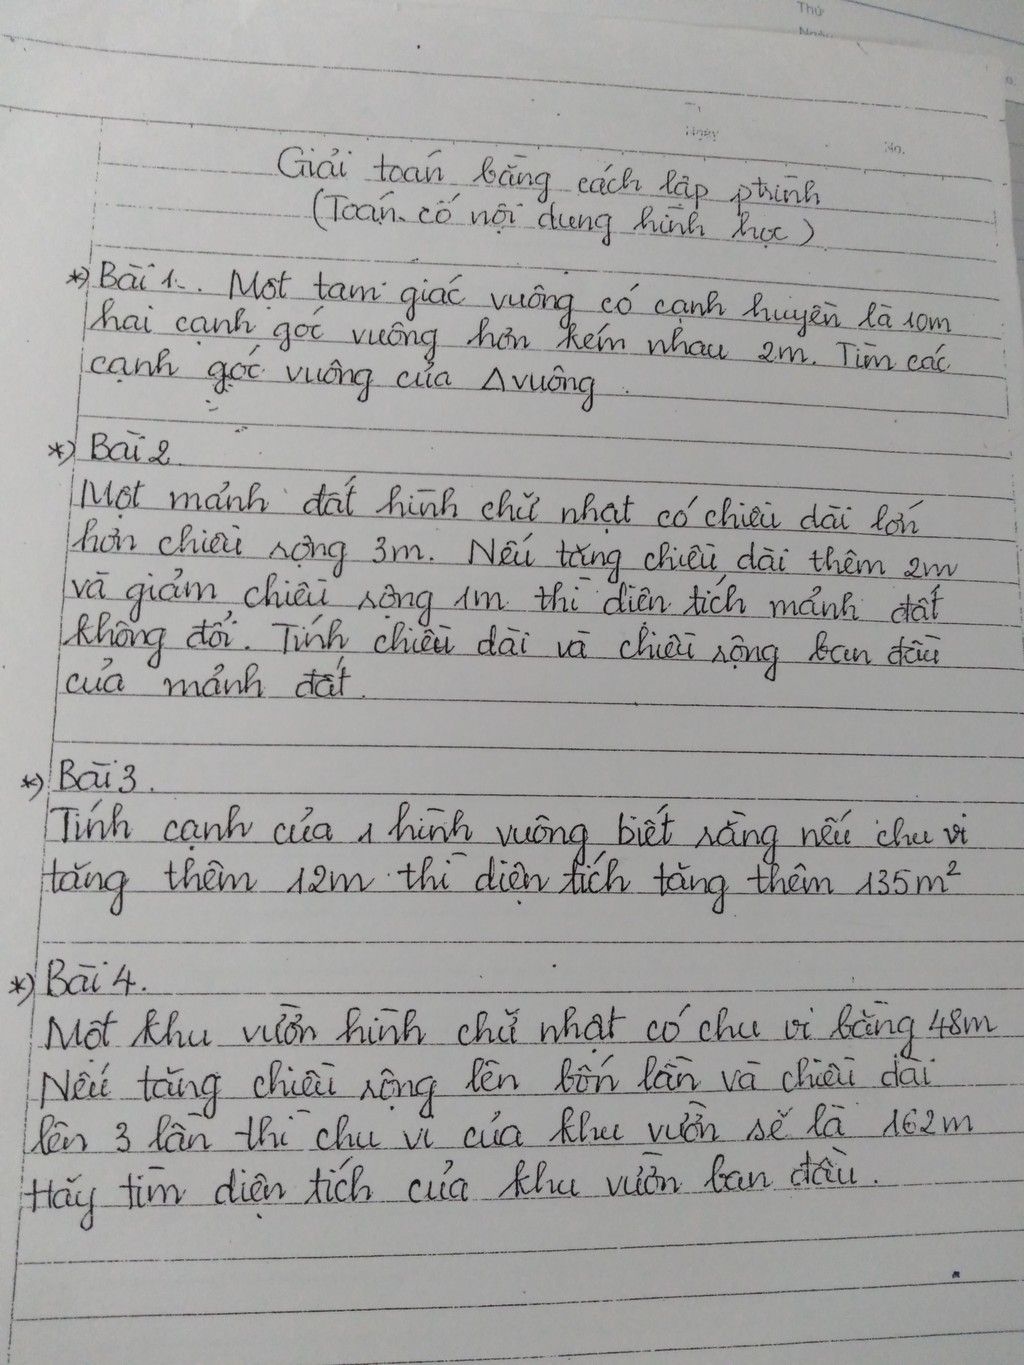 Thứ
Ngày
Ngày
No.
Giải toán bằng cách lập ptrình
(Toán có nội dung hình học)
*) Bài 1. Một tam giác vuông có cạnh huyền là 10m
hai cạnh góc vuông hơn kém nhau 2m. Tìm các
cạnh góc vuông của Δ vuông.
*) Bài 2
Một mảnh đất hình chữ nhật có chiều dài lớn
hơn chiều rộng 3m. Nếu tăng chiều dài thêm 2m
và giảm chiều rộng 1m thì diện tích mảnh đất
không đổi. Tính chiều dài và chiều rộng ban đầu
của mảnh đất.
*) Bài 3.
Tính cạnh của 1 hình vuông biết rằng nếu chu vi
tăng thêm 12m thì diện tích tăng thêm 135m²
*) Bài 4.
Một khu vườn hình chữ nhật có chu vi bằng 48m
Nếu tăng chiều rộng lên bốn lần và chiều dài
lên 3 lần thì chu vi của khu vườn sẽ là 162m
Hãy tìm diện tích của khu vườn ban đầu.